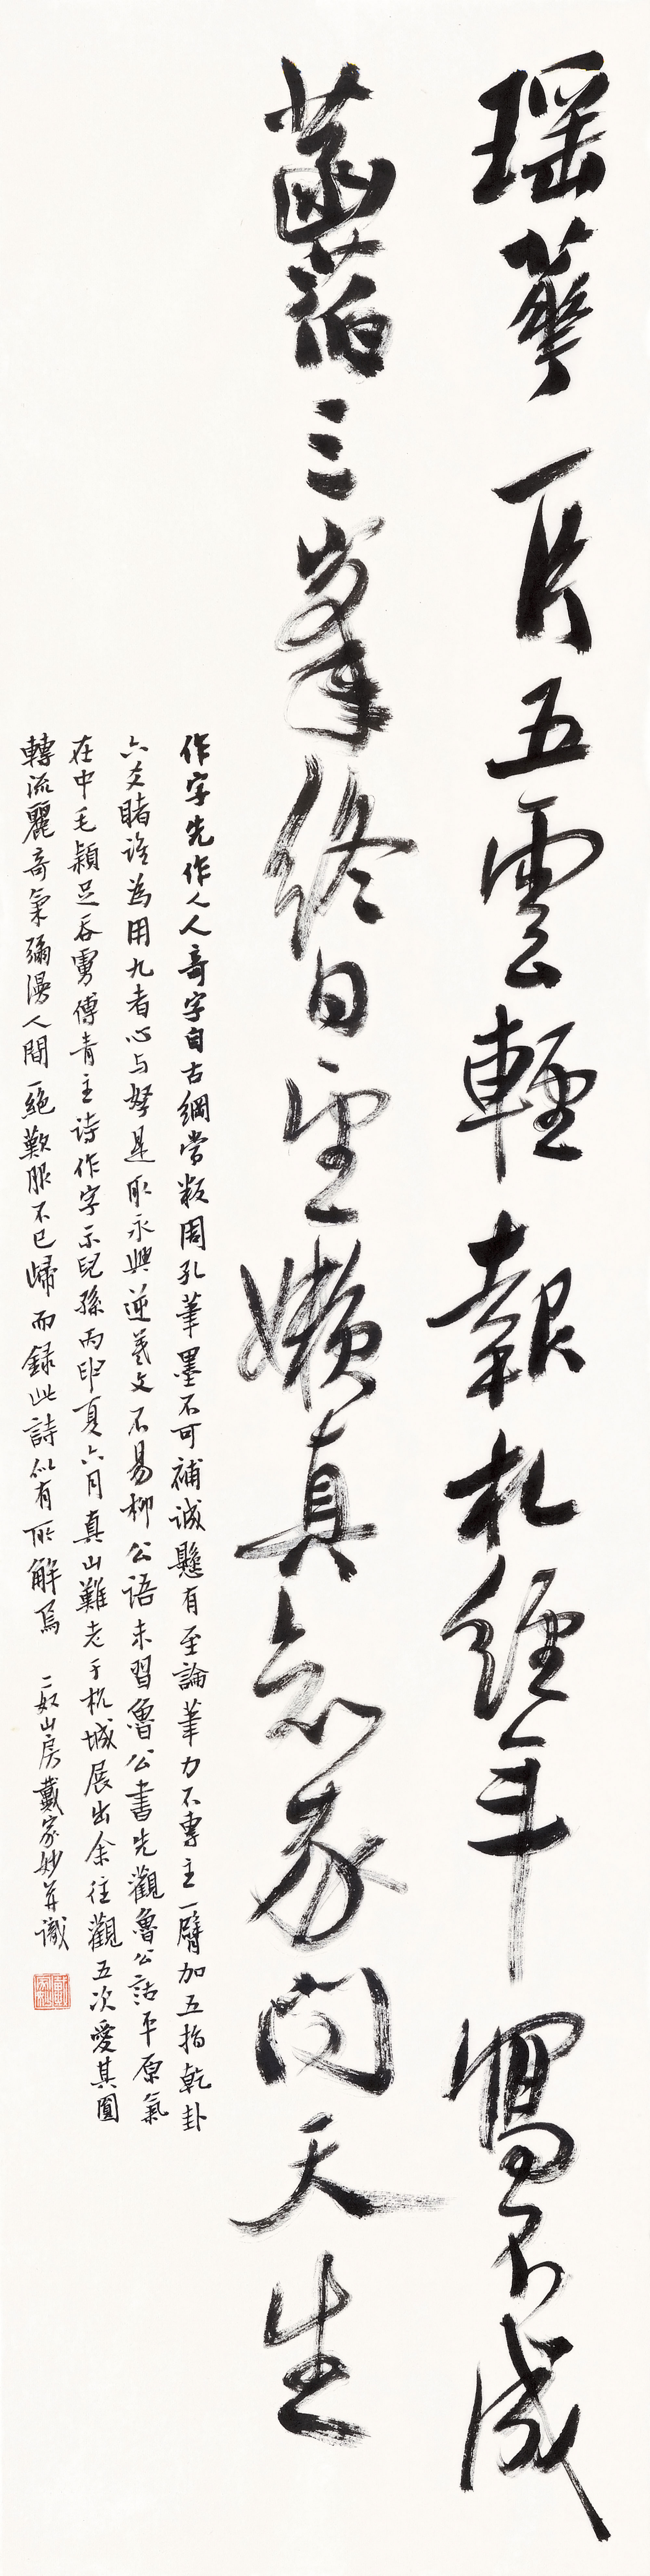 瑶華一片五雲輕報札經年寫不成
菡萏三峯終日望嬾真問天生
作字先作人人奇字自古綱常叛周孔筆墨不可補誠懸有至論筆力不專主一臂加五指乾卦
六爻睹誰為用九者心与掔是取永興逆羲文不易柳公語未習魯公書先觀魯公詁平原氣
在中毛穎足吞虜傅青主詩作字示兒孫丙申夏六月真山難老于杭城展出余往觀五次愛其圓
轉流麗奇氣彌漫人間一絕歎服不已歸而録此詩似有所解焉 二如山房戴家妙并識